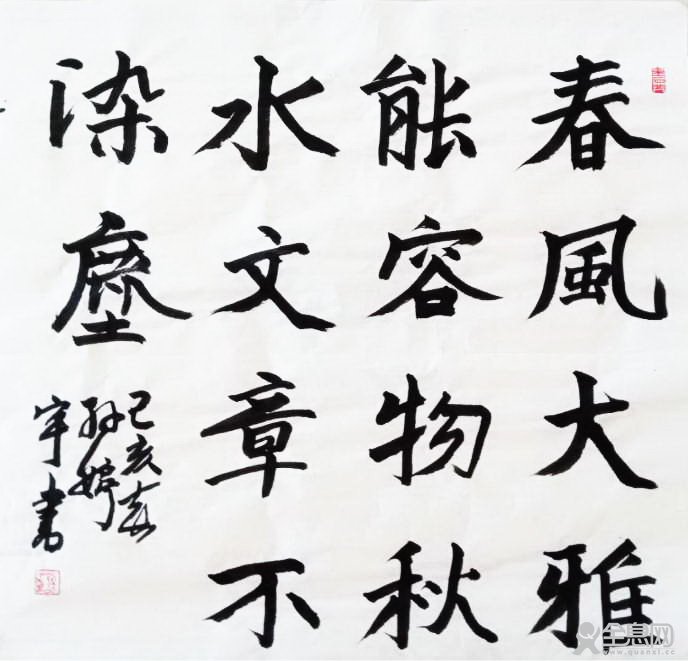 春風大雅
能容物秋
水文章不
染塵
己亥春
孙婷
宇书
全息网
www.quanxi.cc